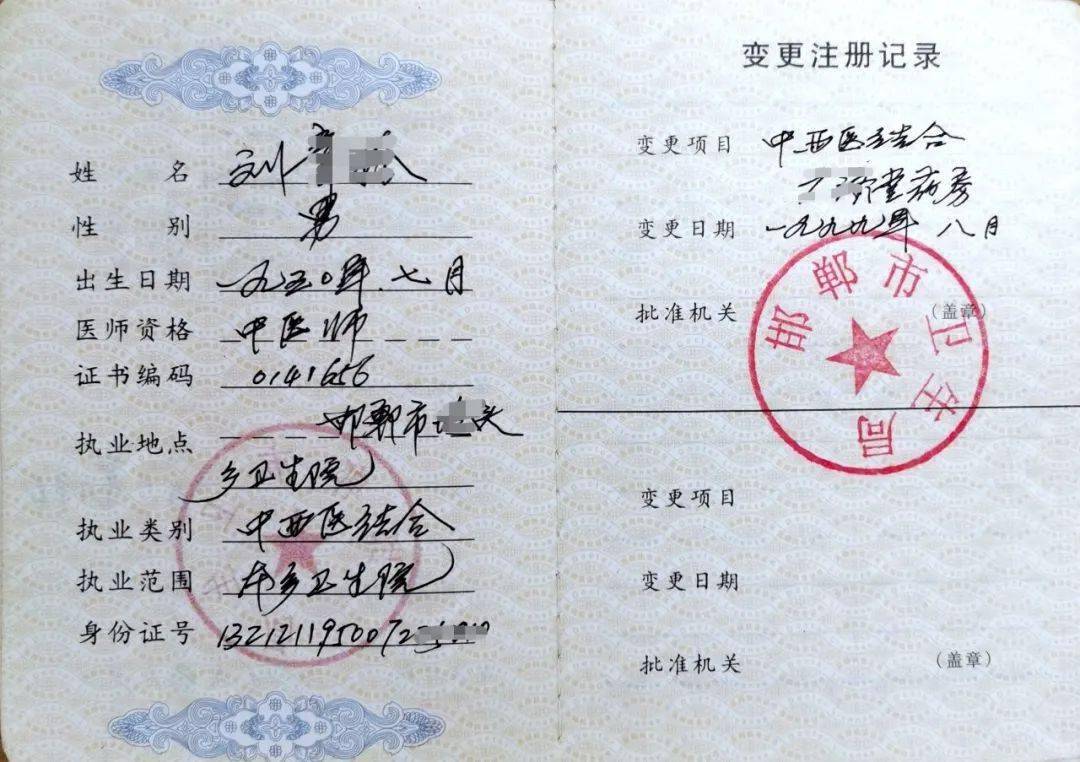 姓名 刘
性别 男
出生日期 一九五〇年.七月
医师资格 中医师
证书编码 0141656
执业地点 邯郸市
乡卫生院
执业类别 中西医结合
执业范围 本乡卫生院
身份证号 1321211950072
变更注册记录
变更项目 中西医结合
变更日期 一九九九年八月
批准机关 (盖章)
邯郸市卫生局
变更项目
变更日期
批准机关 (盖章)